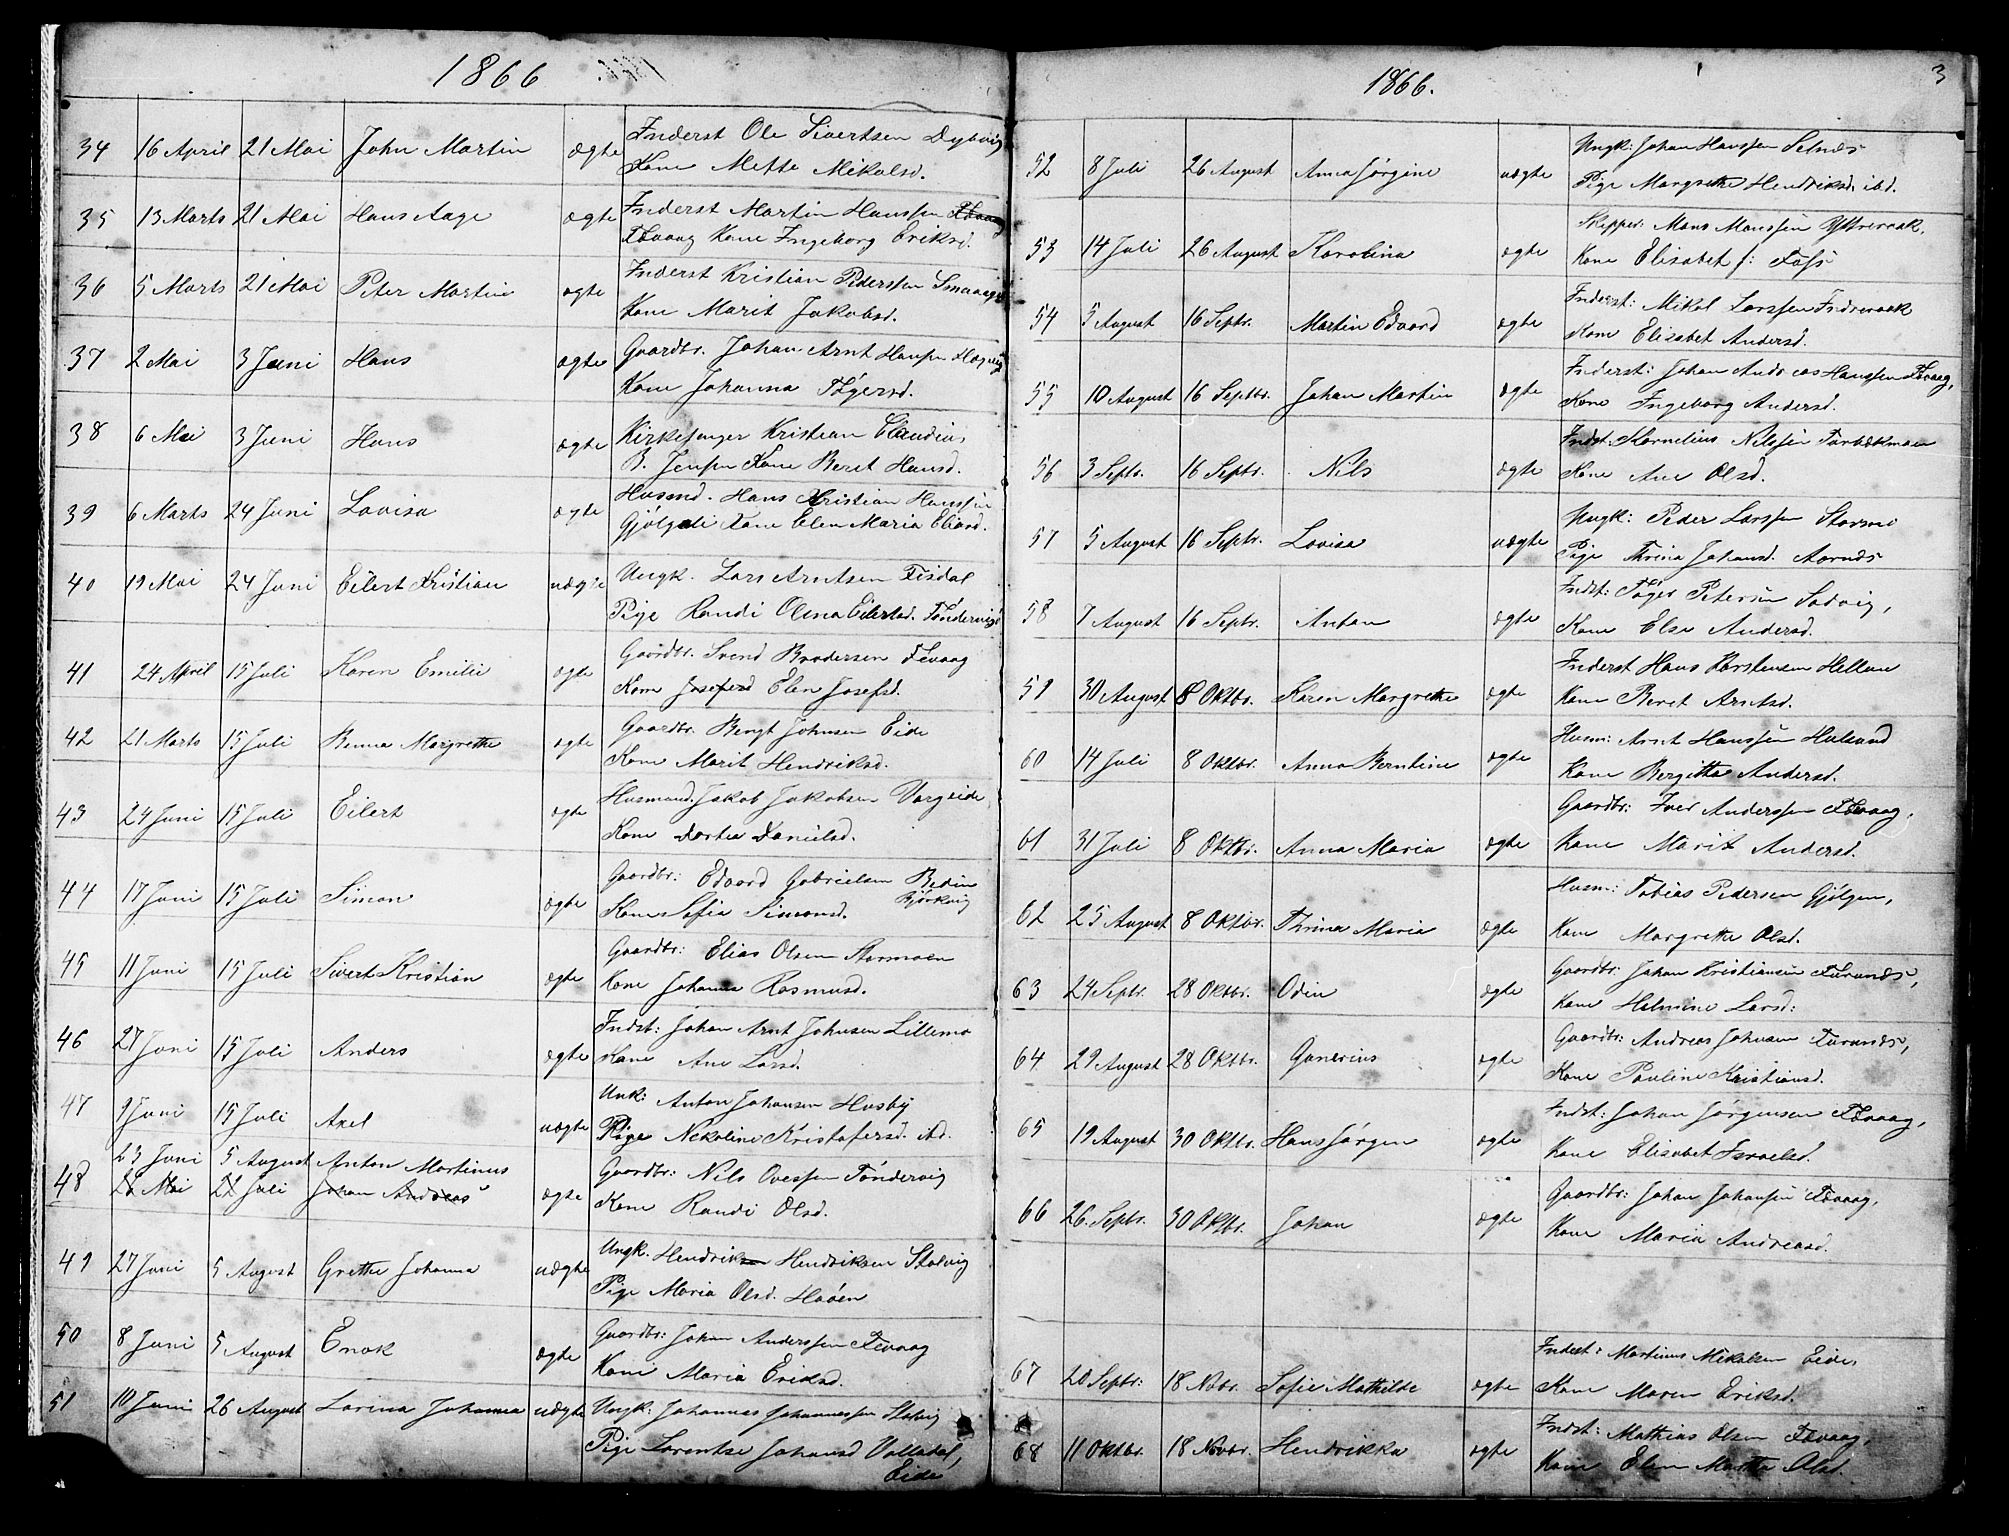 1866
34 16 April 21 Mai John Martin ægte Inderst Ole Sivertsen Dybvig
Kone Mette Mikalsd.
35 13 Marts 21 Mai Hans Aage ægte Inderst Martin Hanssen
Kone Ingeborg Eriksd.
36 5 Marts 21 Mai Peter Martin ægte Inderst Kristian Pederssen
Kone Marit Jakobsd.
37 2 Mai 3 Juni Hans ægte Gaardbr. Johan Arnt Hansen
Kone Johanna Tøgersd.
38 6 Mai 3 Juni Hans ægte Kirkesanger Kristian Claudius
B. Jensen Kone Beret Hansd.
39 6 Marts 24 Juni Lovisa ægte Husmd. Hans Kristian Hanssen
Kone Elen Maria
40 19 Mai 24 Juni Eilert Kristian uægte Ungk. Lars Arntsen Fisdal
Pige Randi Olina Eilertsd. Tøndervig
41 24 April 15 Juli Karen Emilie ægte Gaardbr. Svend Brodersen Flevaag
Kone Josefsd Elen Josefsd.
42 21 Marts 15 Juli Benna Margrethe ægte Gaardbr. Bengt Johnsen Eide
Kone Marit Hendriksd.
43 24 Juni 15 Juli Eilert ægte Husmand. Jakob Jakobsen Vargeide
Kone Dortea Danielsd.
44 17 Juni 15 Juli Simon ægte Gaardbr: Edvard Gabrielsen Bedin
Kone Sofia Simonsd. Bjørkvig
45 11 Juni 15 Juli Sivert Kristian ægte Gaardbr: Elias Olsen Stormoen
Kone Johanna Rasmusd.
46 27 Juni 15 Juli Anders ægte Indst: Johan Arnt Johnsen Lillemo
Kone Ane Larsd.
47 9 Juni 15 Juli Axel uægte Unk: Anton Johansen Husby
Pige Nekoline Kristofersd. ibd.
23 Juni 5 August Anton Martinus
48 28 Mai 22 Juli Johan Andreas ægte Gaardbr: Nils Ovessen Tøndervig
Kone Randi Olsd.
49 27 Juni 5 August Grethe Johanna uægte Ungk. Hendriksen Hendriksen Stolvig
Pige Maria Olsd. Haøen
50 8 Juni 5 August Enok ægte Gaardbr: Johan Anderssen Flevaag
Kone Maria Eriksd.
51 10 Juni 26 August Lorina Johanna uægte Ungk: Johannas Johannessen Stolvig
Pige Lorentse Johansd Valladal,
Eide
1866. 3
52 8 Juli 26 August Anna Jørgine uægte Ungk: Johan Hanssen Selnæs
Pige Margrethe Hendriksd. ibd.
53 14 Juli 26 August Karolina ægte Skipper: Mons Monssen Yttreraak,
Kone Elisabet f: Fass
54 5 August 16 Septr. Martin Edvard ægte Inderst: Mikal Larssen Indreraak
Kone Elisabet Andersd.
55 10 August 16 Septbr. Johan Martin ægte Inderst: Johan Andreas Hanssen Flevaag,
Kone Ingeborg Andersd.
56 3 Septr. 16 Septr. Nils ægte Indst: Kornelius Nilssen Torbekmoen
Kone Ane Olsd.
57 5 August 16 Septr. Lovisa uægte Ungk: Peder Larssen Stormo
Pige Thrina Johansd. Aarnæs
58 7 August 16 Septr. Anton ægte Indst: Tøger Petersen Sodvig,
Kone Else Andersd.
59 30 August 8 Oktbr. Karen Margrethe ægte Inderst Hans Karstensen Hellan
Kone Beret Arntsd.
60 14 Juli 8 Oktbr. Anna Berntine ægte Husm: Arnt Hanssen Hulsund
Kone Bergitta Andersd.
61 31 Juli 8 Oktbr. Anna Maria ægte Gaardbr: Iver Anderssen Flevaag,
Kone Marit Andersd.
62 25 August 8 Oktbr. Thrina Maria ægte Husm: Tobias Pedersen Gjølgen,
Kone Margrethe Olsd.
63 24 Septr. 28 Oktbr. Odin ægte Gaardbr: Johan Kristiansen Furunæs,
Kone Helmine Larsd:
64 29 August 28 Oktbr. Gunerius ægte Gaardbr: Andreas Johnsen Furunæs,
Kone Pauline Kristiansd.
65 19 August 30 Oktbr. Hans Jørgen ægte Indst: Johan Jørgensen Flevaag,
Kone Elisabet Israelsd.
66 26. Septr. 30 Oktbr. Johan ægte Gaardbr: Johan Johansen Flevaag,
Kone Maria Andreasd.
67 20 Septbr: 18 Novbr. Sofie Mathilde ægte Inderst: Martinus Mikalsen Eide,
Kone Maren Eriksd.
68 11 Oktbr. 18 Novbr. Hendrikka ægte Indst: Mathias Olsen Flevaag,
Kone Elen Martha Olsd.